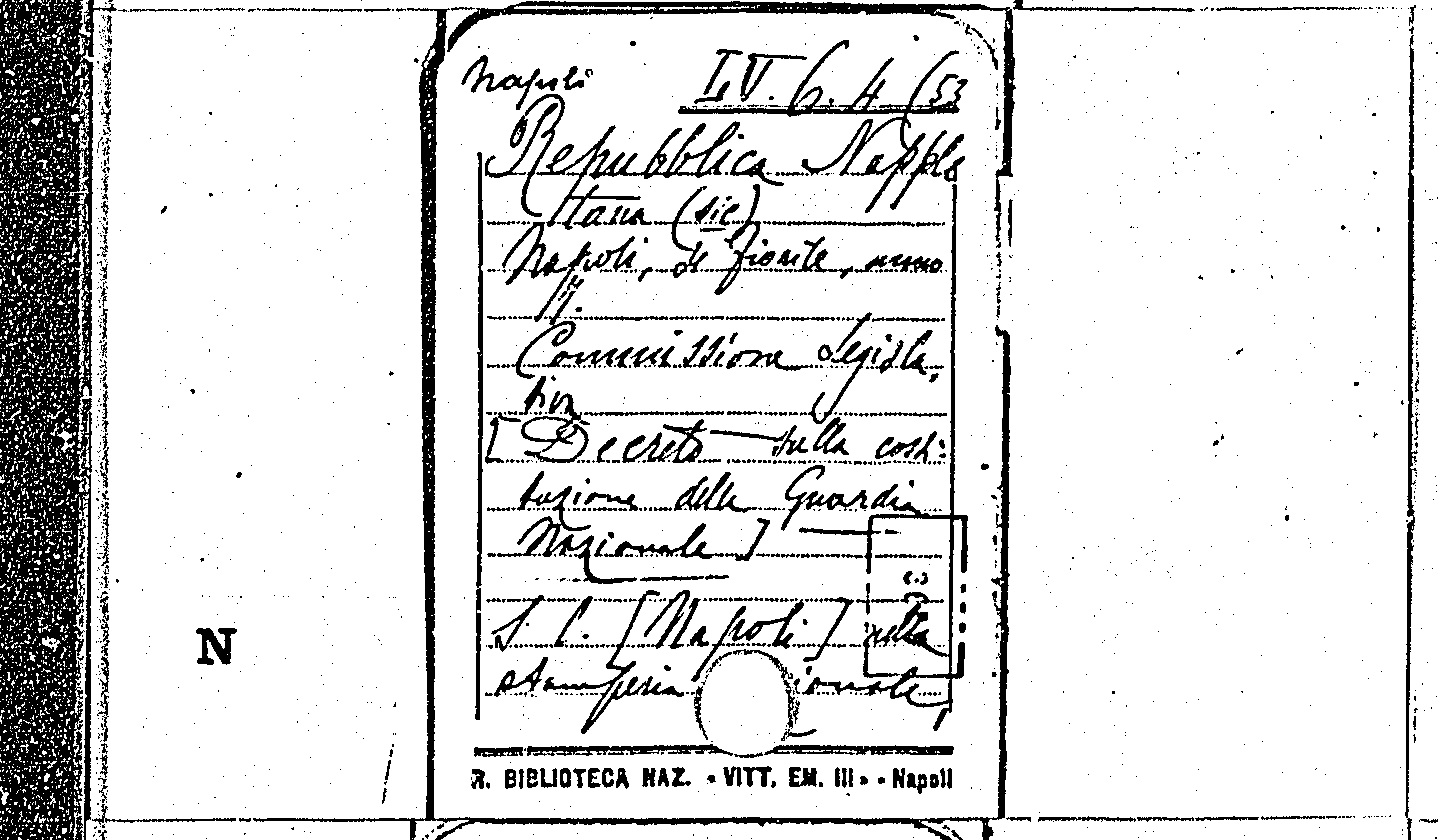 Napoli L.V. 6. 4 (53
Repubblica Napple
tana (sic)
Napoli, fiorile, anno
Commissione Legisla,
tiva
[Decreto sulla costi:
tuzione della Guardia
Nazionale]
S. l. [Napoli] nella
stamperia ionale,
N
R. BIBLIOTECA NAZ. « VITT. EM. III » - Napoli